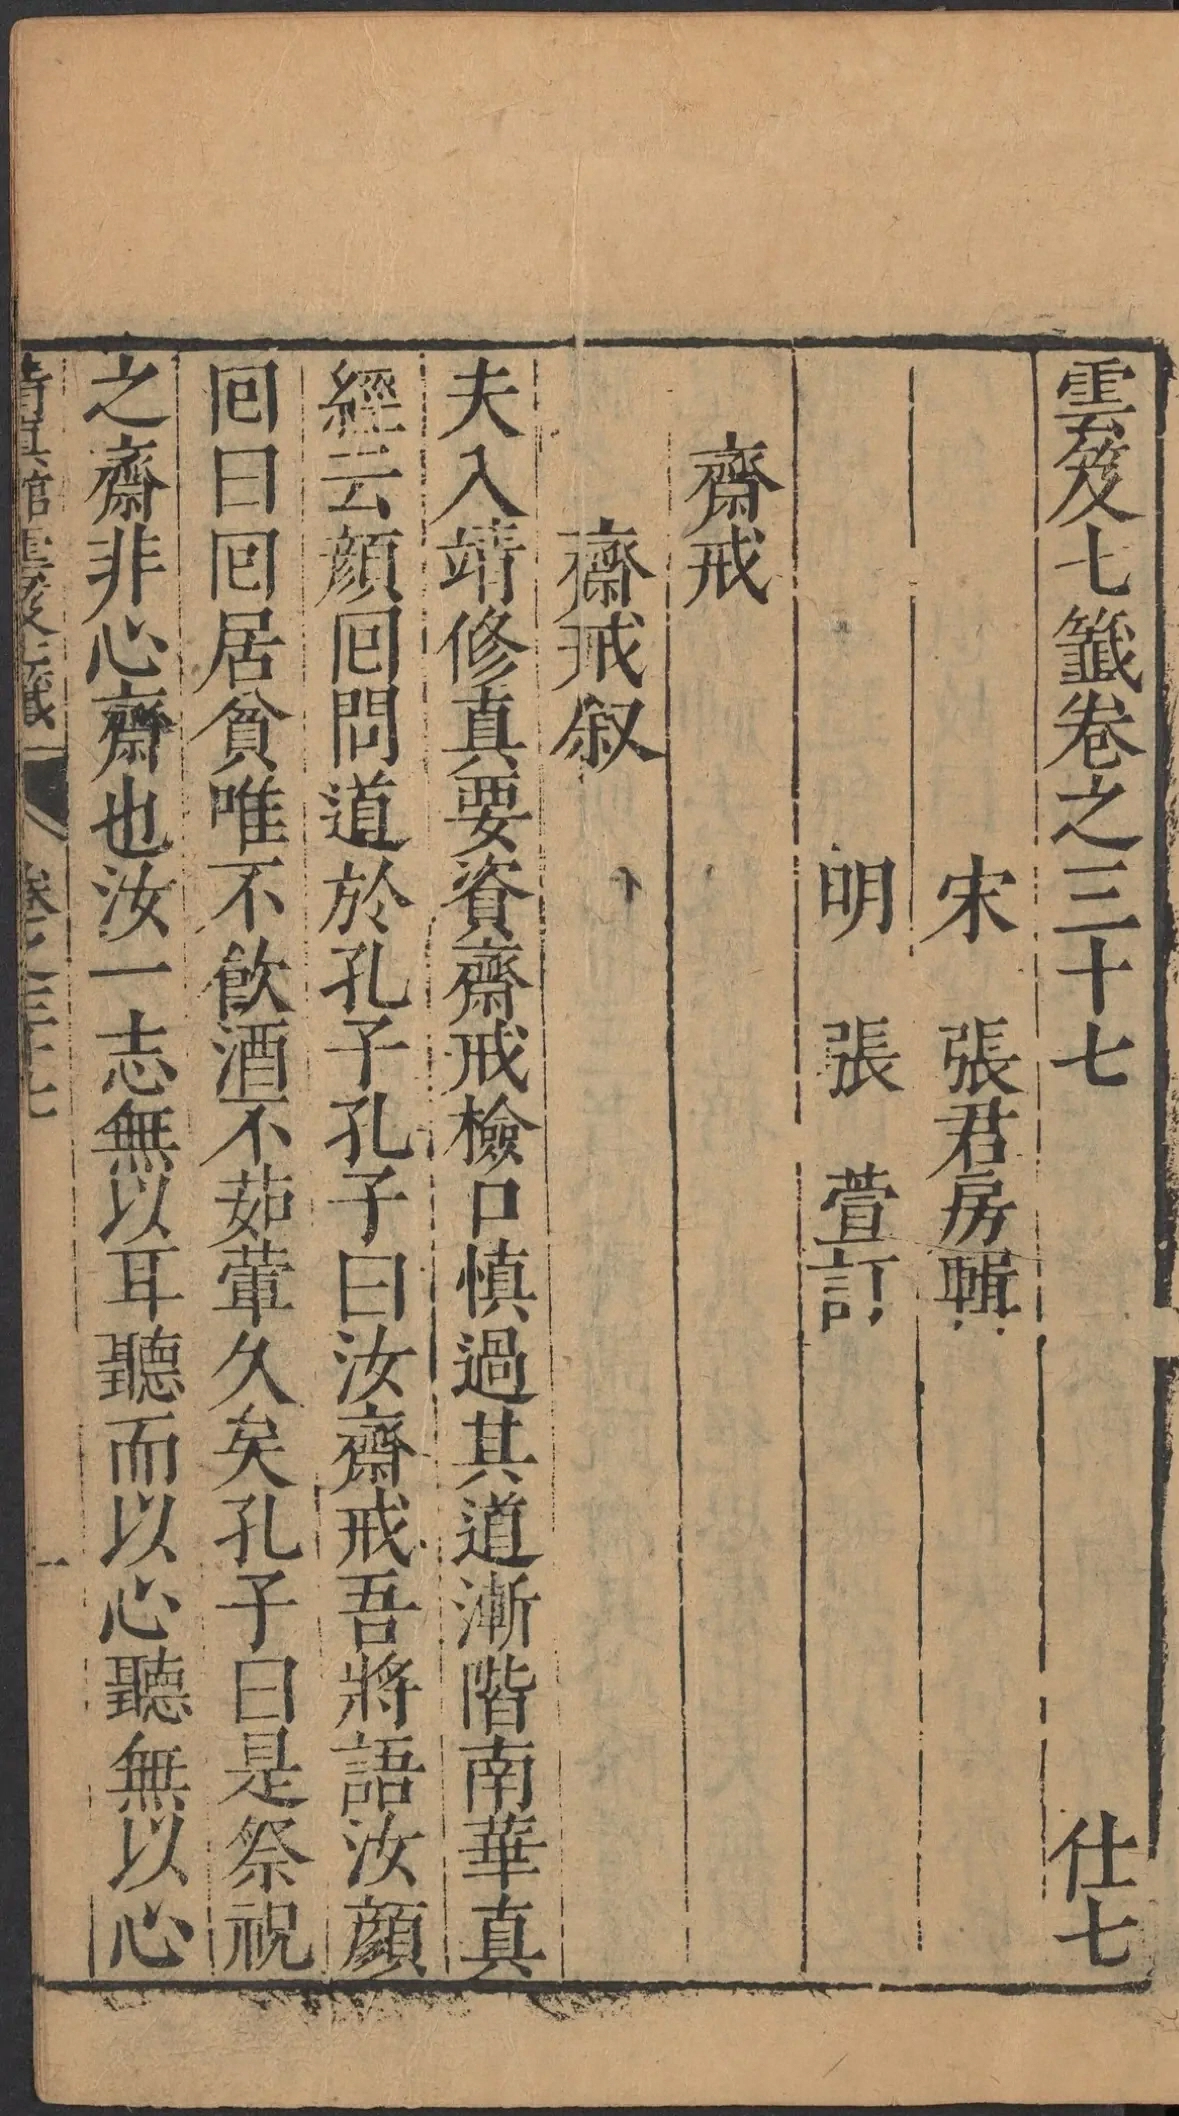 雲笈七籤卷之三十七 仕七
宋 張君房輯
明 張 萱訂
齋戒
齋戒叙
夫入靖修真要資齋戒檢口慎過其道漸階南華真
經云顔囘問道於孔子孔子曰汝齋戒吾將語汝顔
囘曰囘居貧唯不飲酒不茹葷久矣孔子曰是祭祀
之齋非心齋也汝一志無以耳聽而以心聽無以心
清真館雲笈七籤 卷之三十七 一